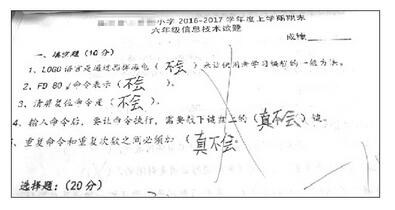 小学 2016-2017 学年度上学期期末
六年级信息技术试题
成绩
一、填空题（10分）
1、LOGO 语言是通过品 海龟（不会）来让使用者学习编程的一般方法。
2、FD 80 命令表示（不会）。
3、清屏复位命令是（不会）。
4、输入命令后，要让命令执行，需要敲下键盘上的（真不会）键。
、重复命令和重复次数之间必须加（真不会
选择题：（20分）